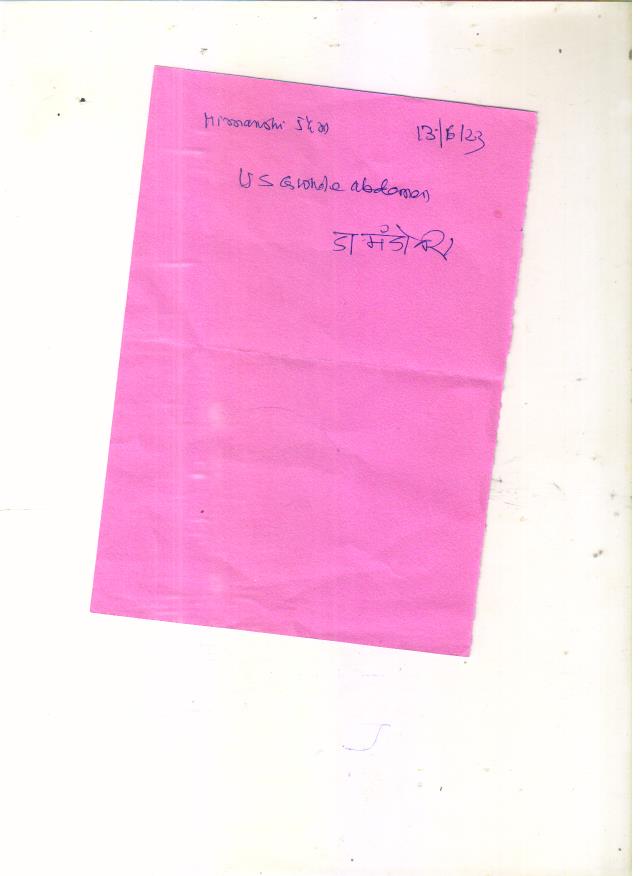 Himanshi 5½ 13/6/23
US G whole abdomen
डा मंडोवरा